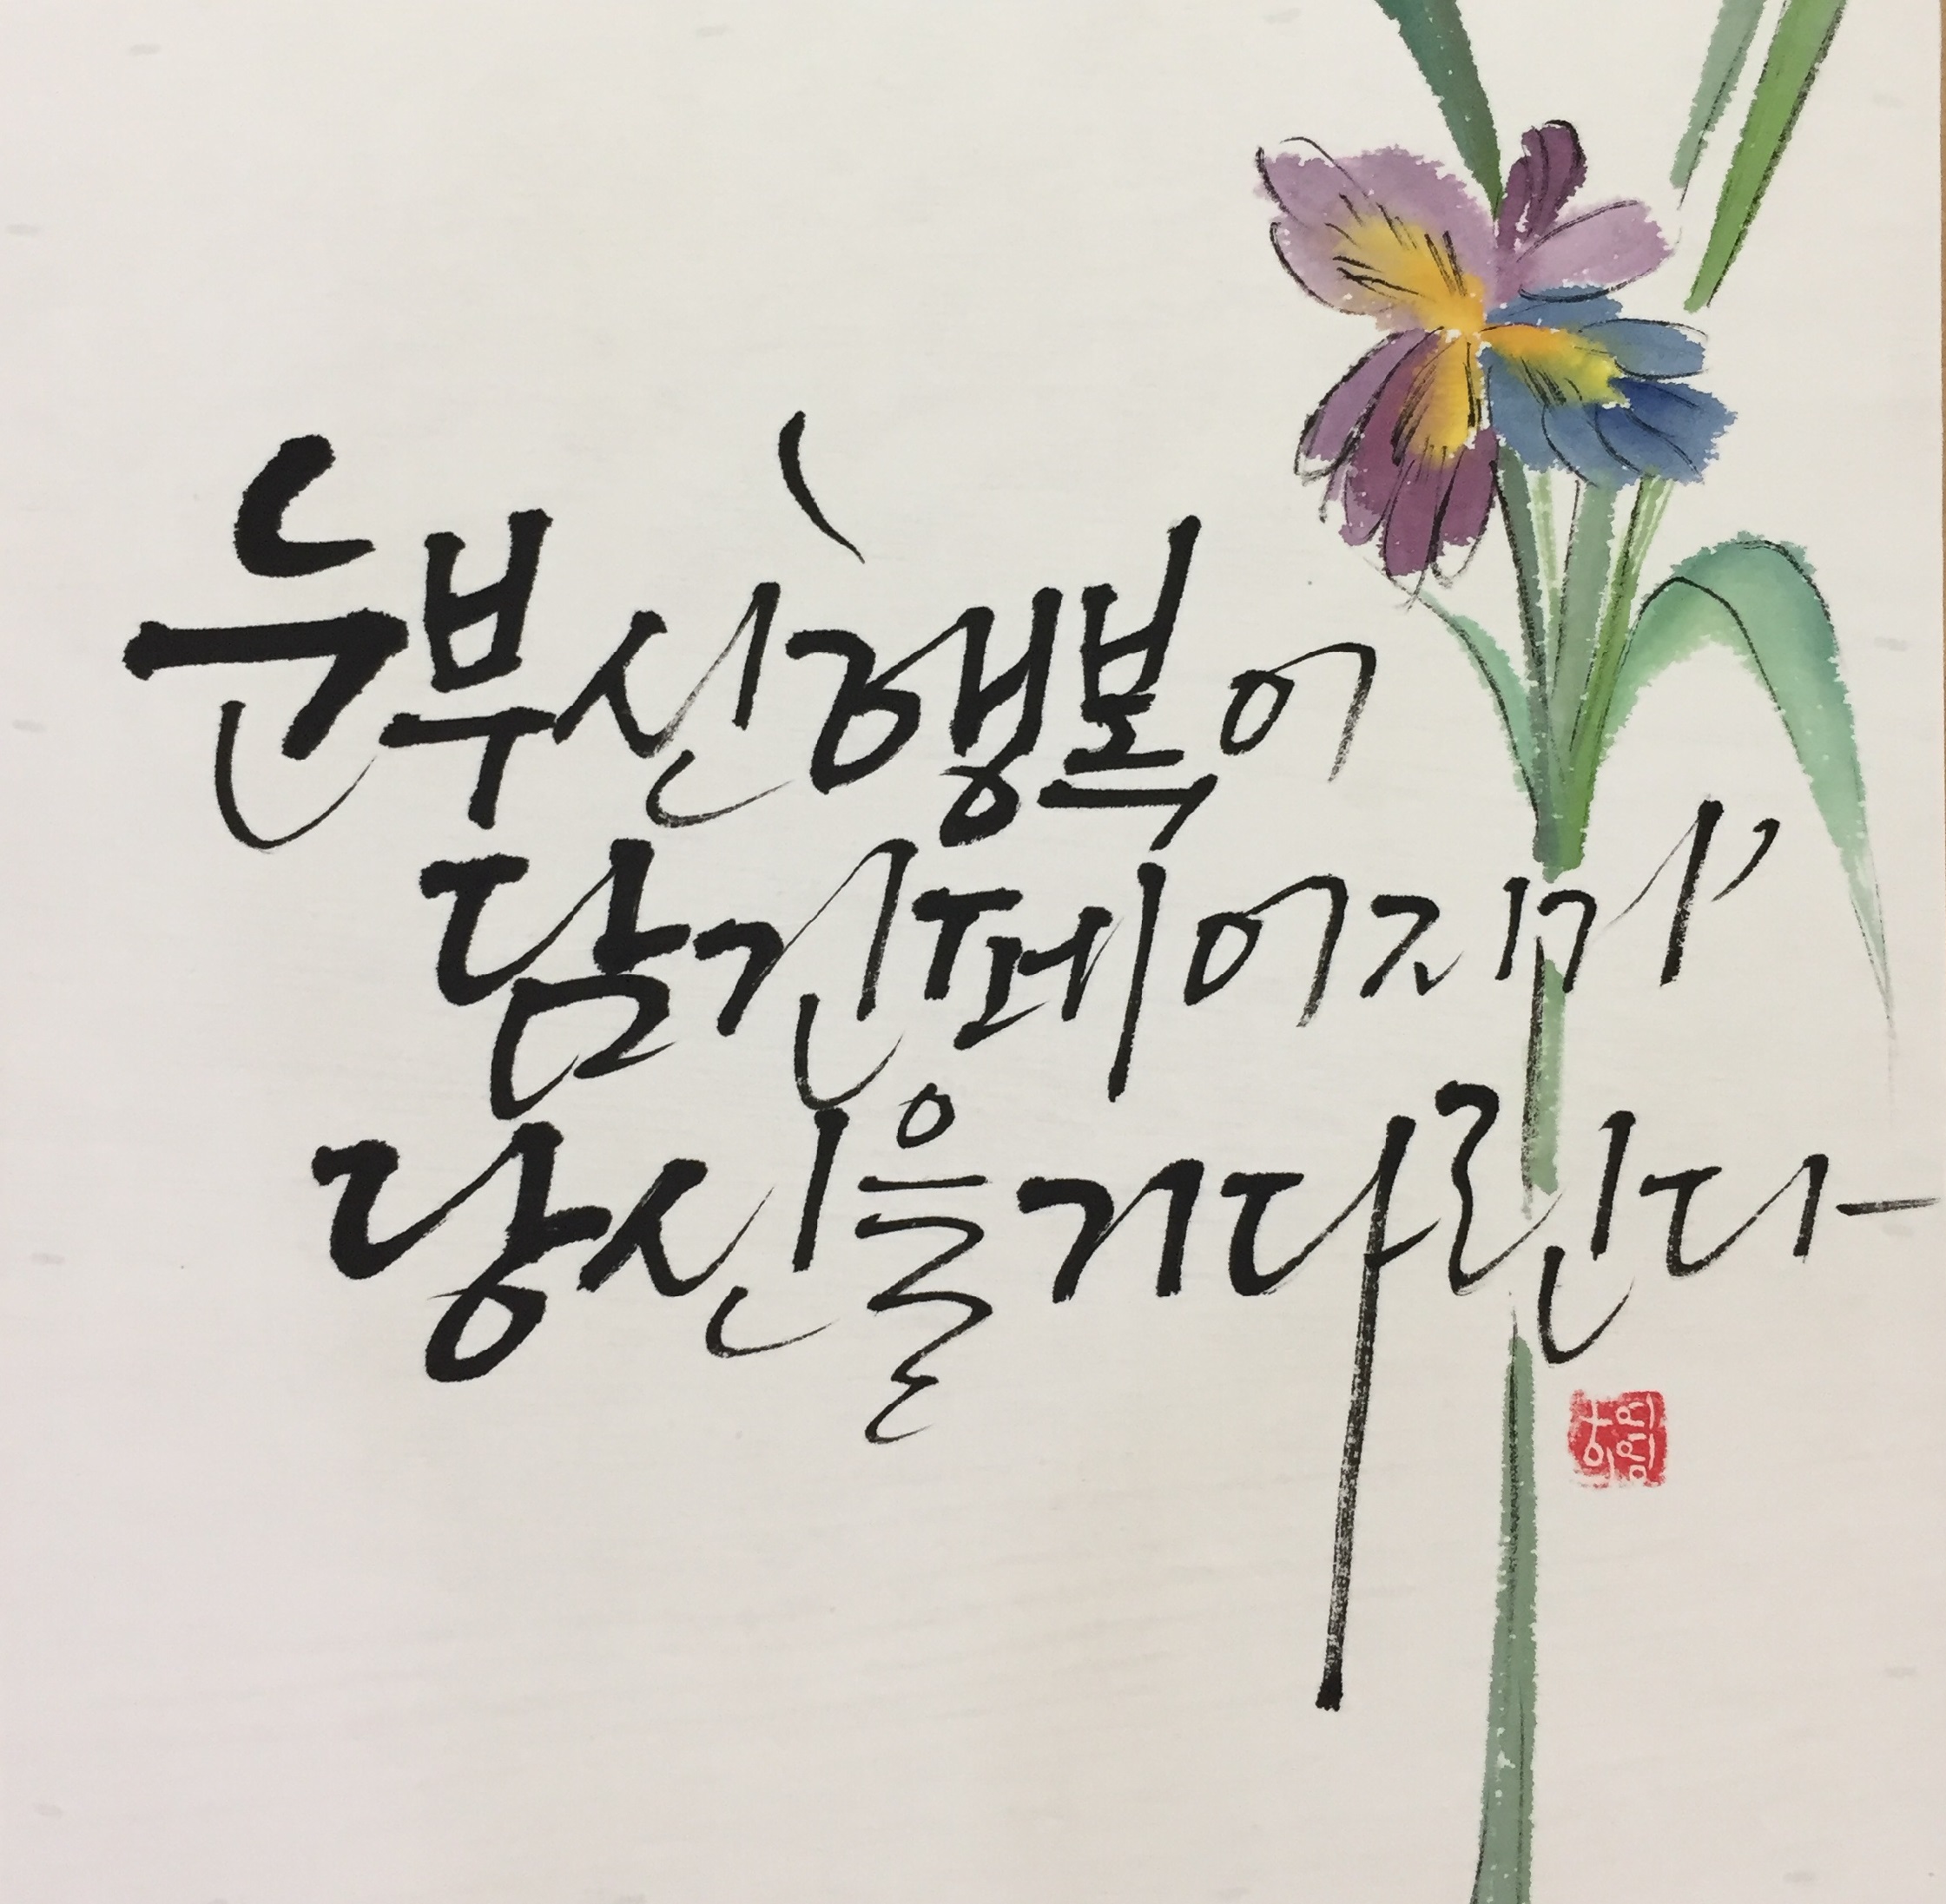 눈부신 행복이
담긴 페이지가
당신을 기다린다